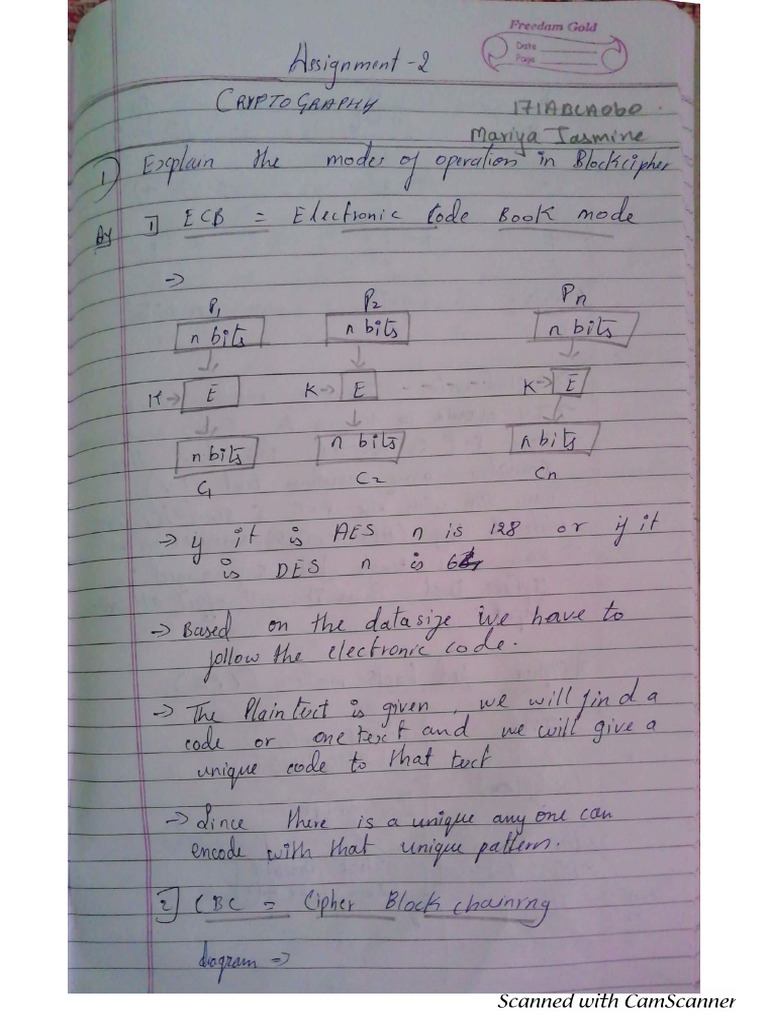 Freedom Gold
Date
Page
Assignment -2
CRYPTOGRAPHY
171ABCA060.
Mariya Jasmine
1) Explain the modes of operation in Blockcipher
1] ECB = Electronic Code Book mode
→
P1 P2 Pn
n bits n bits n bits
↓ ↓ ↓
K→ E K→ E - - - - K→ E
↓ ↓ ↓
n bits n bits n bits
C1 C2 Cn
→ if it is AES n is 128 or if it
is DES n is 64
→ Based on the datasize we have to
follow the electronic code.
→ The Plaintext is given, we will find a
code or one text and we will give a
unique code to that text
→ Since there is a unique any one can
encode with that unique pattern.
2] CBC = Cipher Block chainrng
diagram ⇒
Scanned with CamScanner